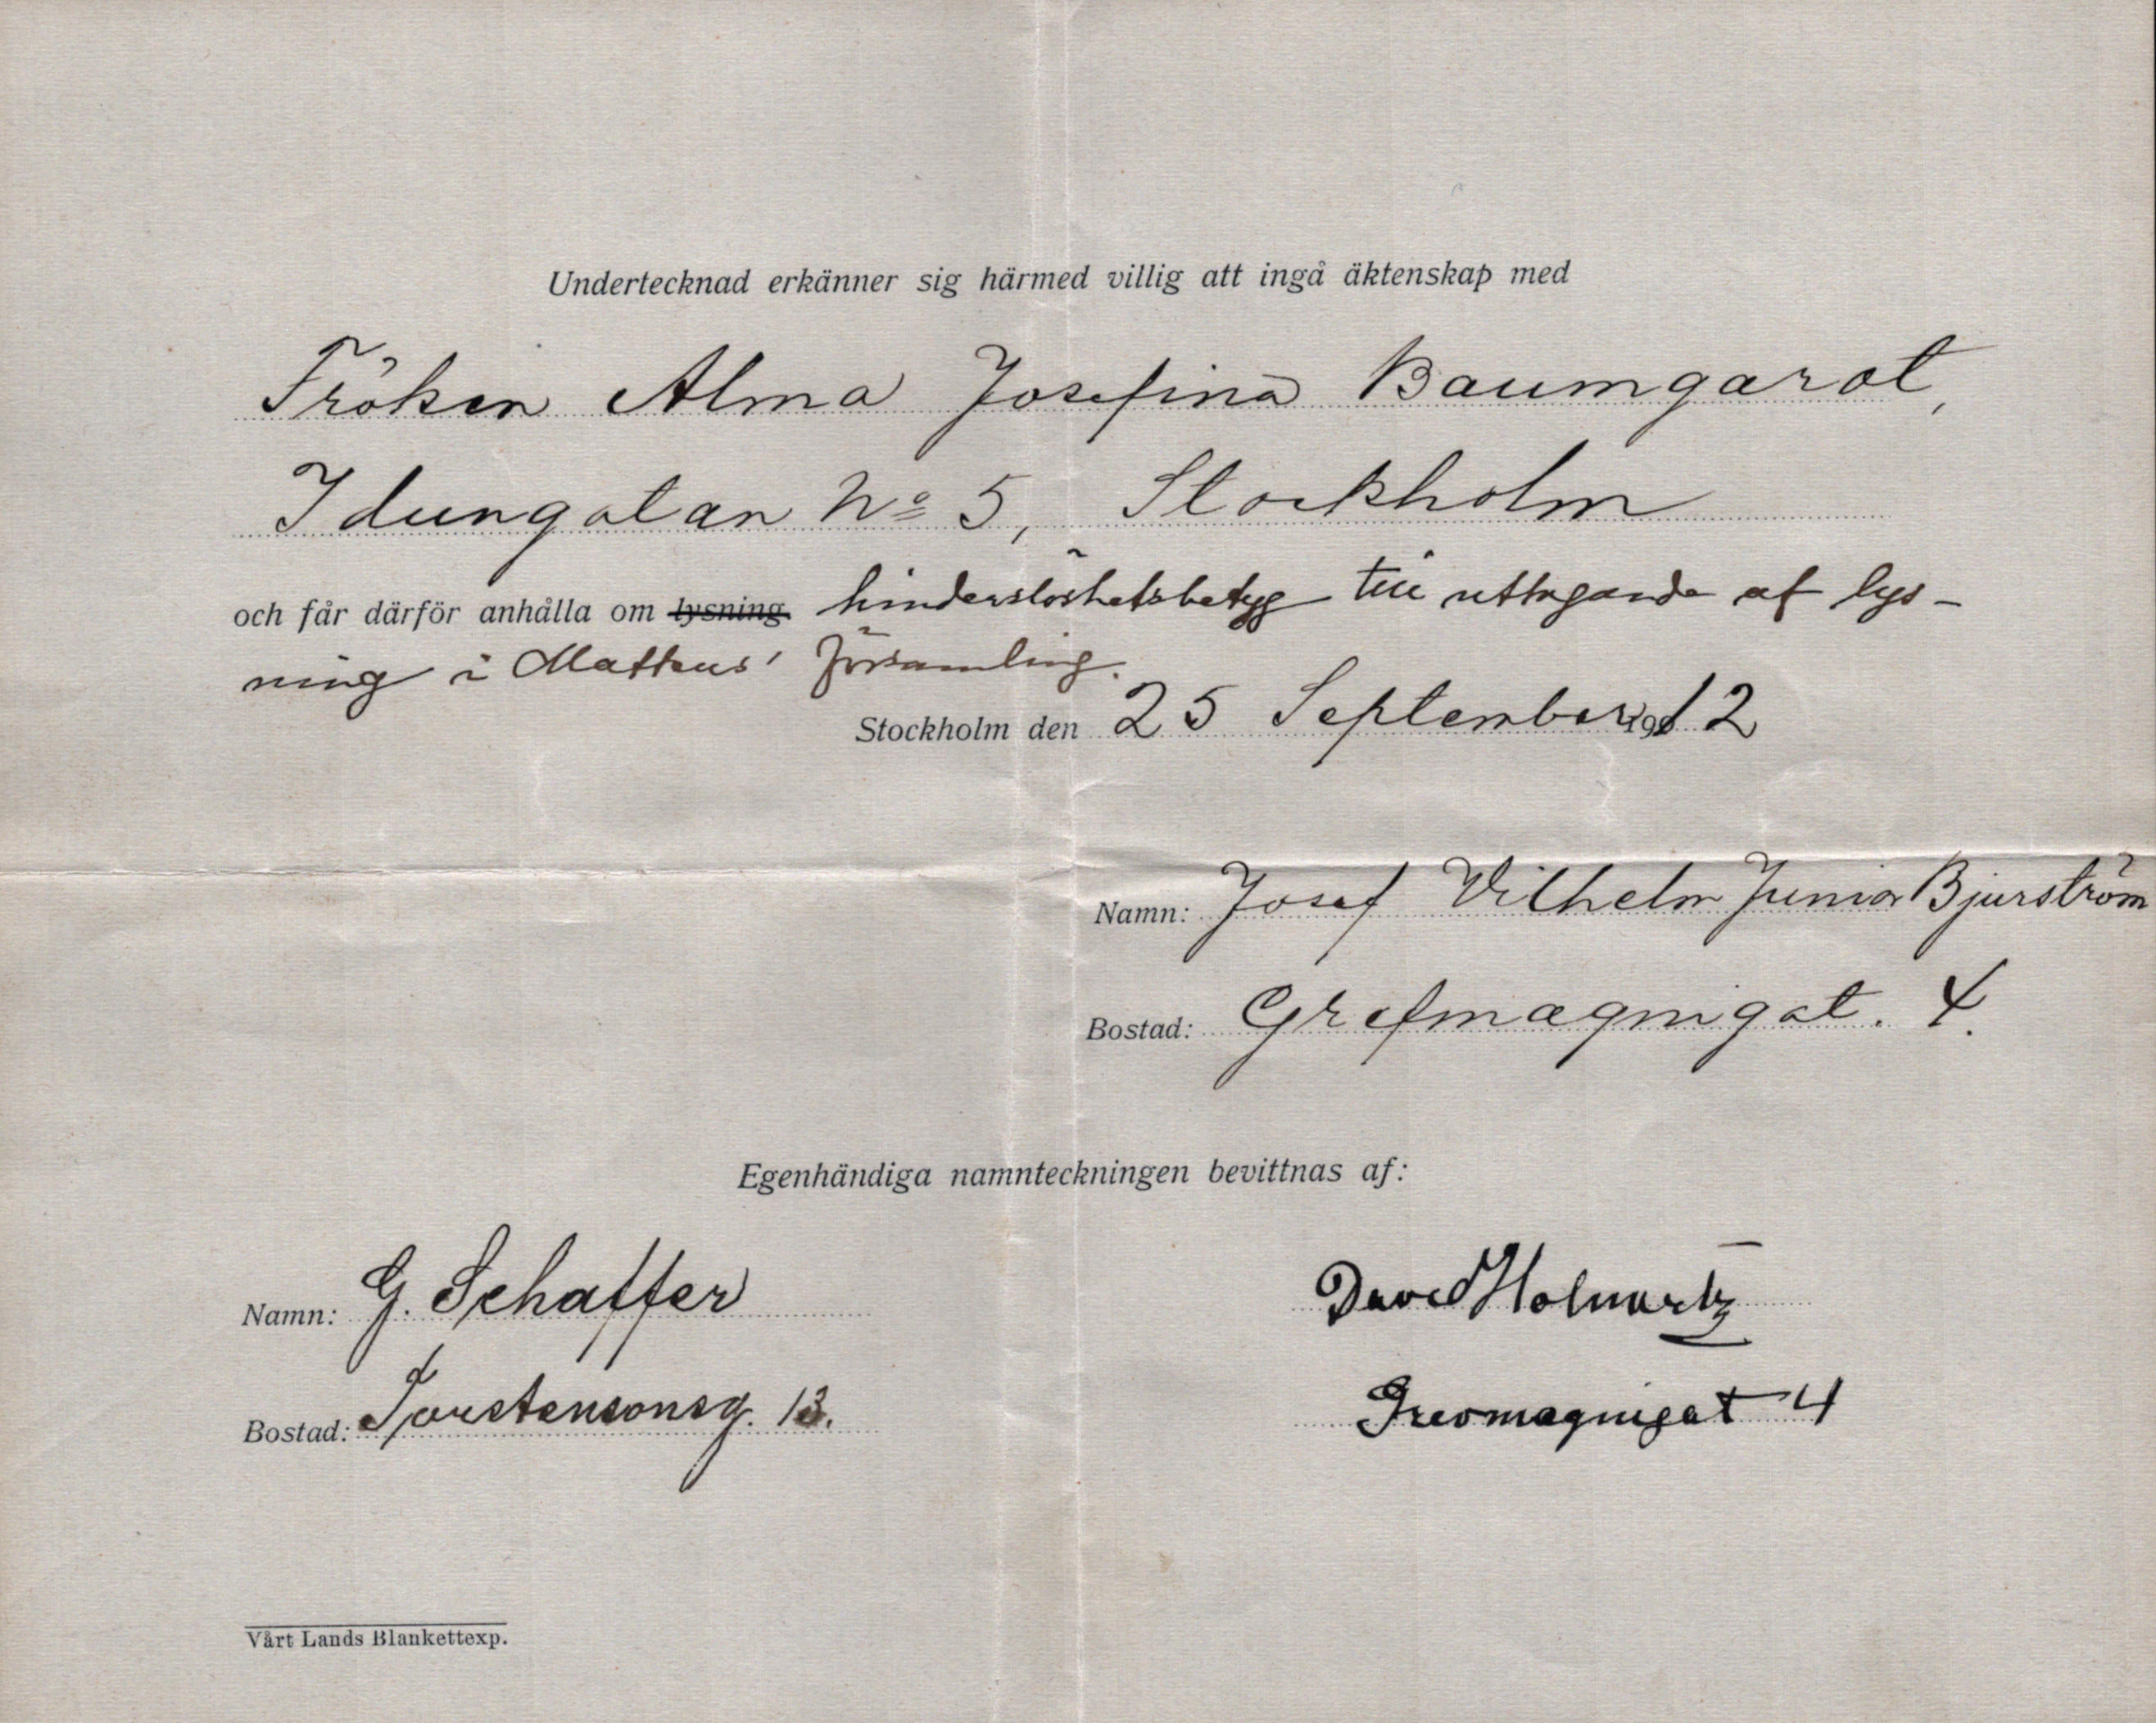 Undertecknad erkänner sig härmed villig att ingå äktenskap med
Fröken Alma Josefina Baumgardt,
Idungatan No 5, Stockholm
och får därför anhålla om lysning hinderslöshetsbetyg till uttagande af lys-
ning i Matteus' församling.
Stockholm den 25 September 1912
Namn: Josef Vilhelm Junior Bjurström
Bostad: Grefmagnigat. 4.
Egenhändiga namnteckningen bevittnas af:
Namn: G. Schaffer David
Bostad: Torstensonsg. 13. Grevmagnigat 4
Vårt Lands Blankettexp.